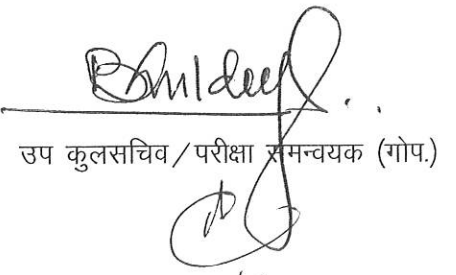 उप कुलसचिव / परीक्षा समन्वयक (गोप.)